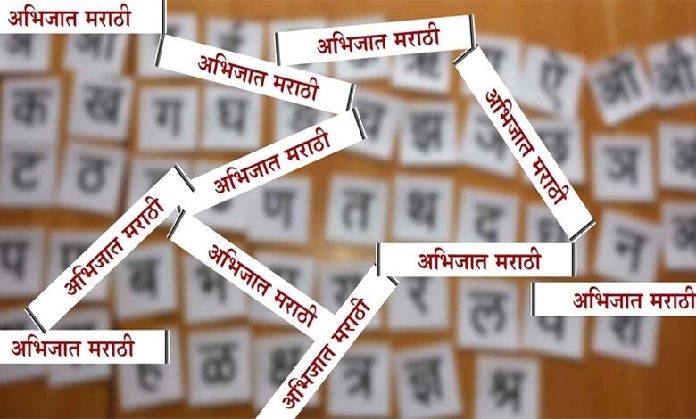 अभिजात मराठी
अभिजात मराठी
अभिजात मराठी
अभिजात मराठी
ऐ ओ औ
क ख ग घ
अभिजात मराठी
ट ठ
ण त थ द
न
अभिजात मराठी
अभिजात मराठी
अभिजात मराठी
प
ब
ल
अभिजात मराठी
अभिजात मराठी
अभिजात मराठी
ळ
त्र ज्ञ श्र